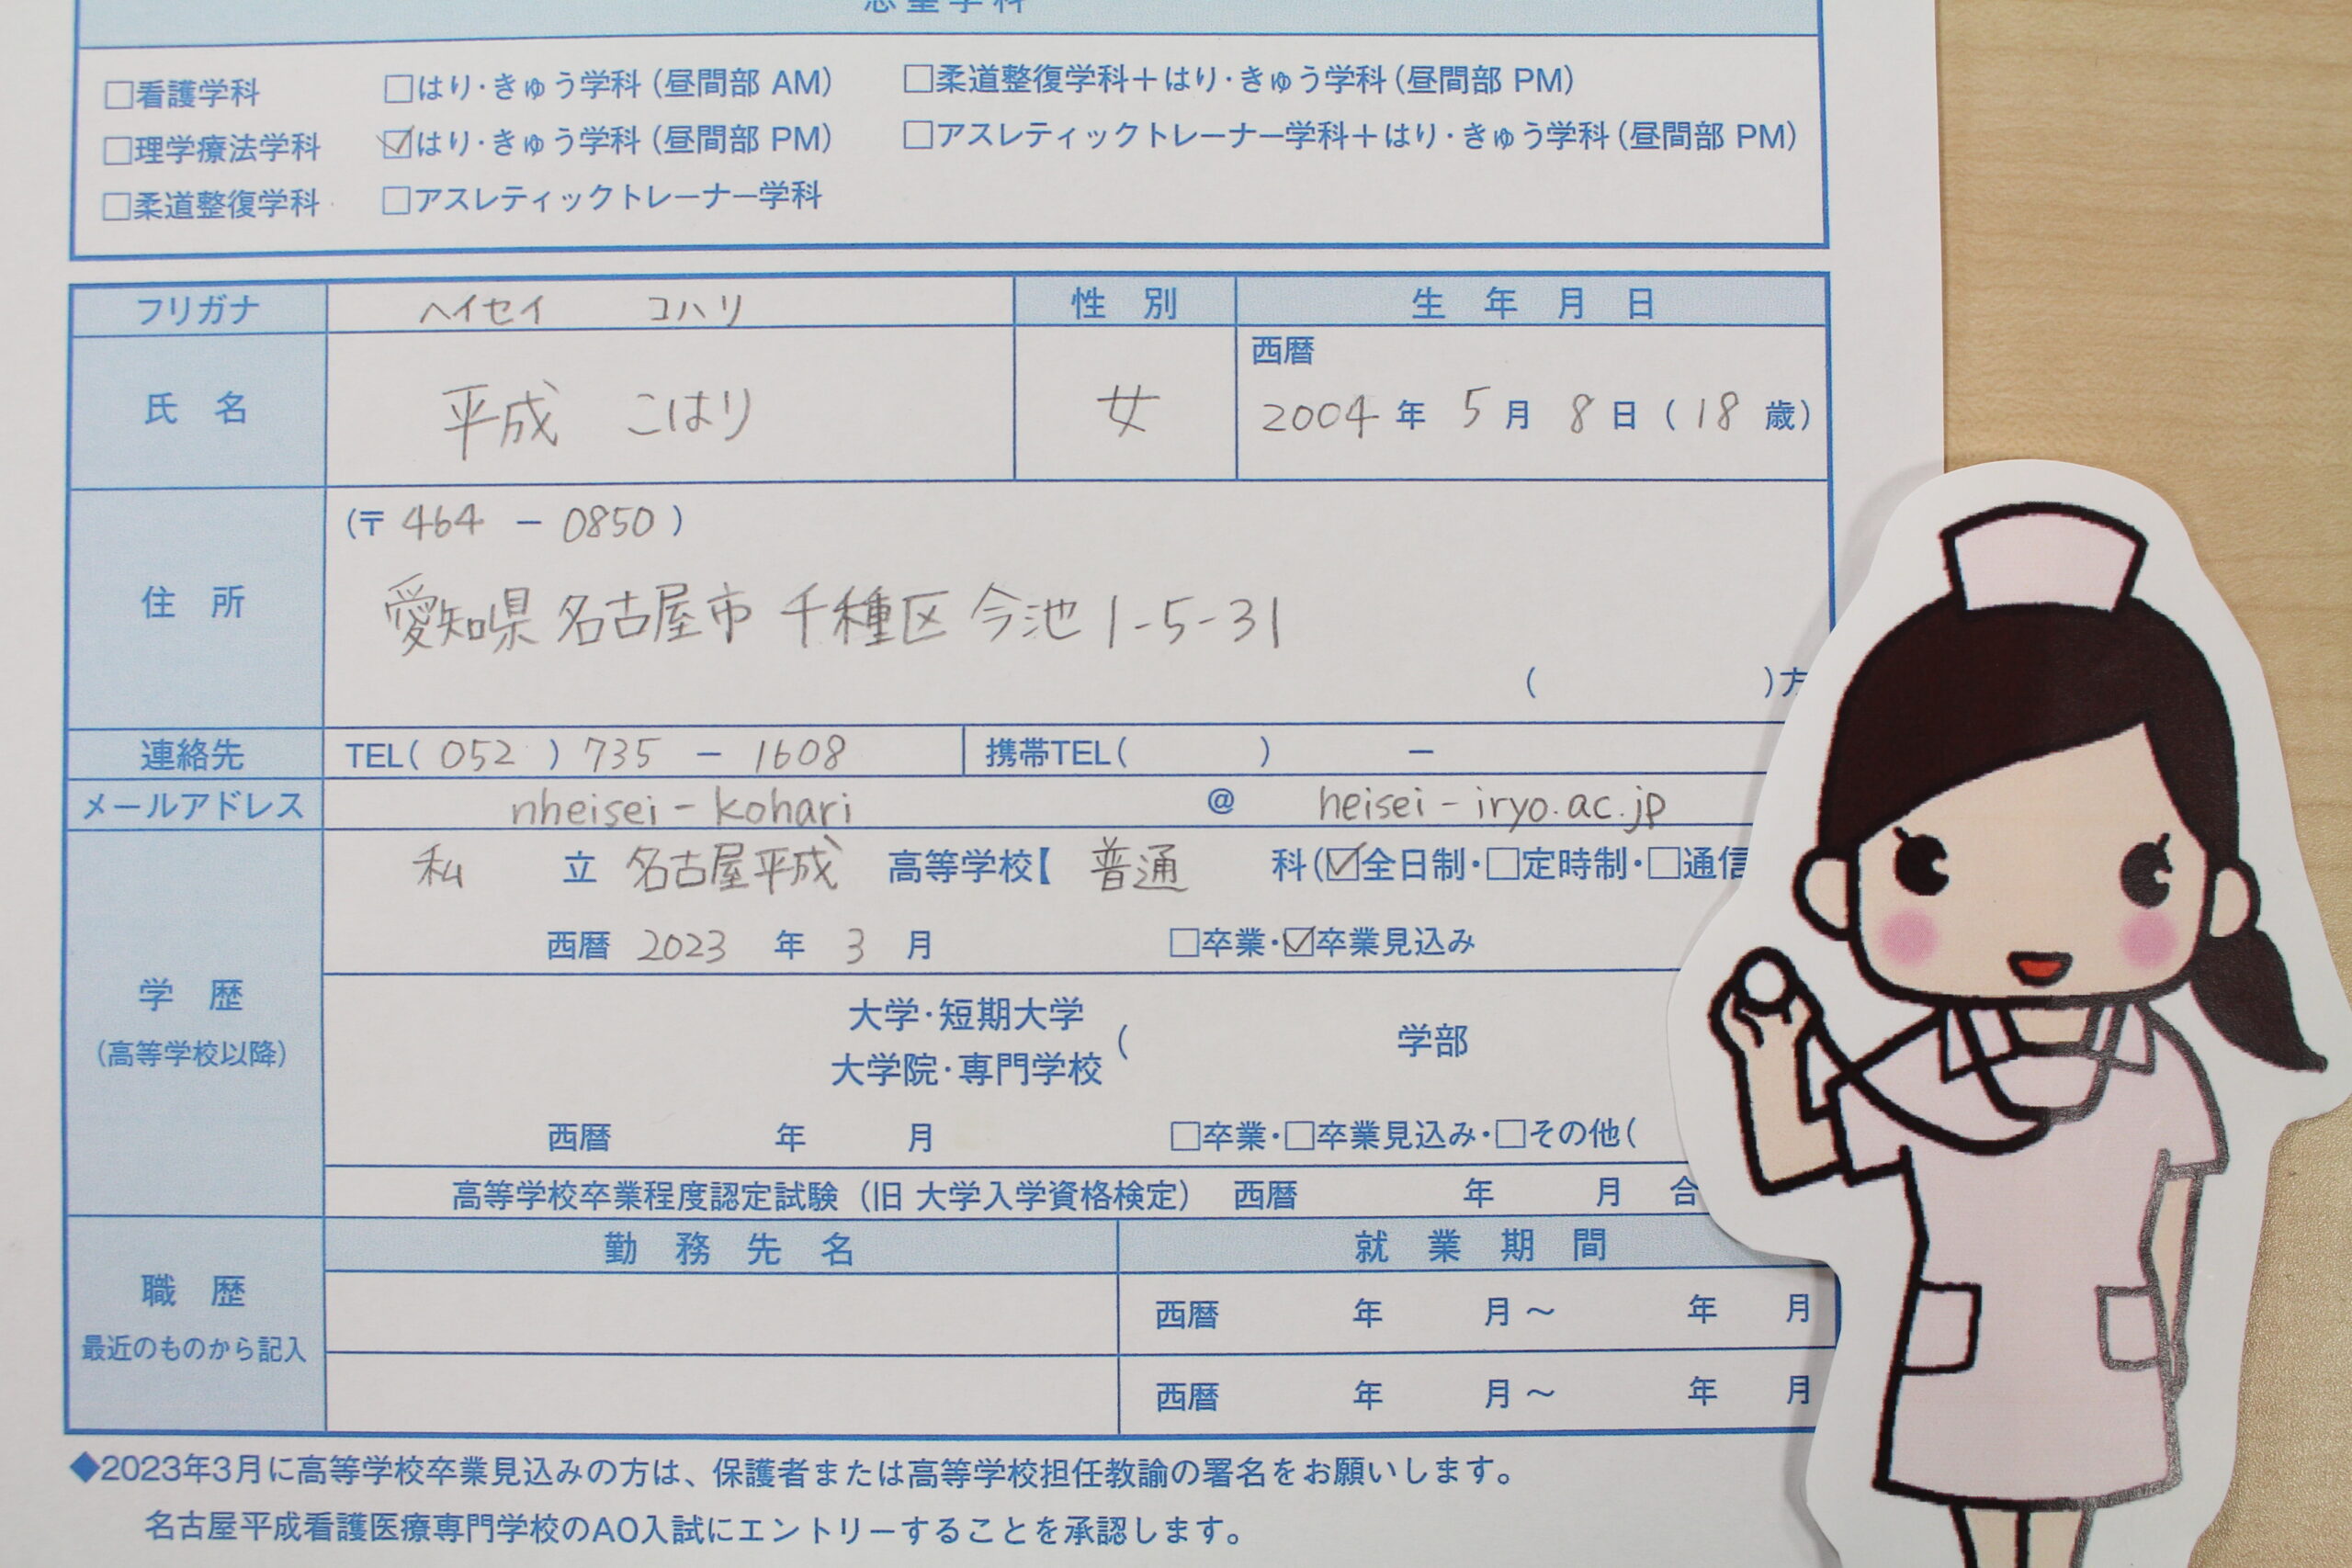 志望学科
□看護学科 □はり・きゅう学科(昼間部 AM) □柔道整復学科+はり・きゅう学科(昼間部 PM)
□理学療法学科 ☑はり・きゅう学科(昼間部 PM) □アスレティックトレーナー学科+はり・きゅう学科(昼間部 PM)
□柔道整復学科 □アスレティックトレーナー学科
フリガナ ヘイセイ コハリ 性別 生年月日
氏名 平成 こはり 女 西暦
2004年 5月 8日 (18歳)
住所 (〒464-0850)
愛知県名古屋市千種区今池1-5-31
( )方
連絡先 TEL(052)735-1608 携帯TEL( ) -
メールアドレス nheisei-kohari @ heisei-iryo.ac.jp
私立 名古屋平成 高等学校【普通 科(☑全日制・□定時制・□通信
西暦 2023年 3月 □卒業・☑卒業見込み
学歴
(高等学校以降)
大学・短期大学
大学院・専門学校 ( 学部
西暦 年 月 □卒業・□卒業見込み・□その他(
高等学校卒業程度認定試験(旧 大学入学資格検定) 西暦 年 月 合
職歴
最近のものから記入
勤務先名 就業期間
西暦 年 月~ 年 月
西暦 年 月~ 年 月
◆2023年3月に高等学校卒業見込みの方は、保護者または高等学校担任教諭の署名をお願いします。
名古屋平成看護医療専門学校のAO入試にエントリーすることを承認します。